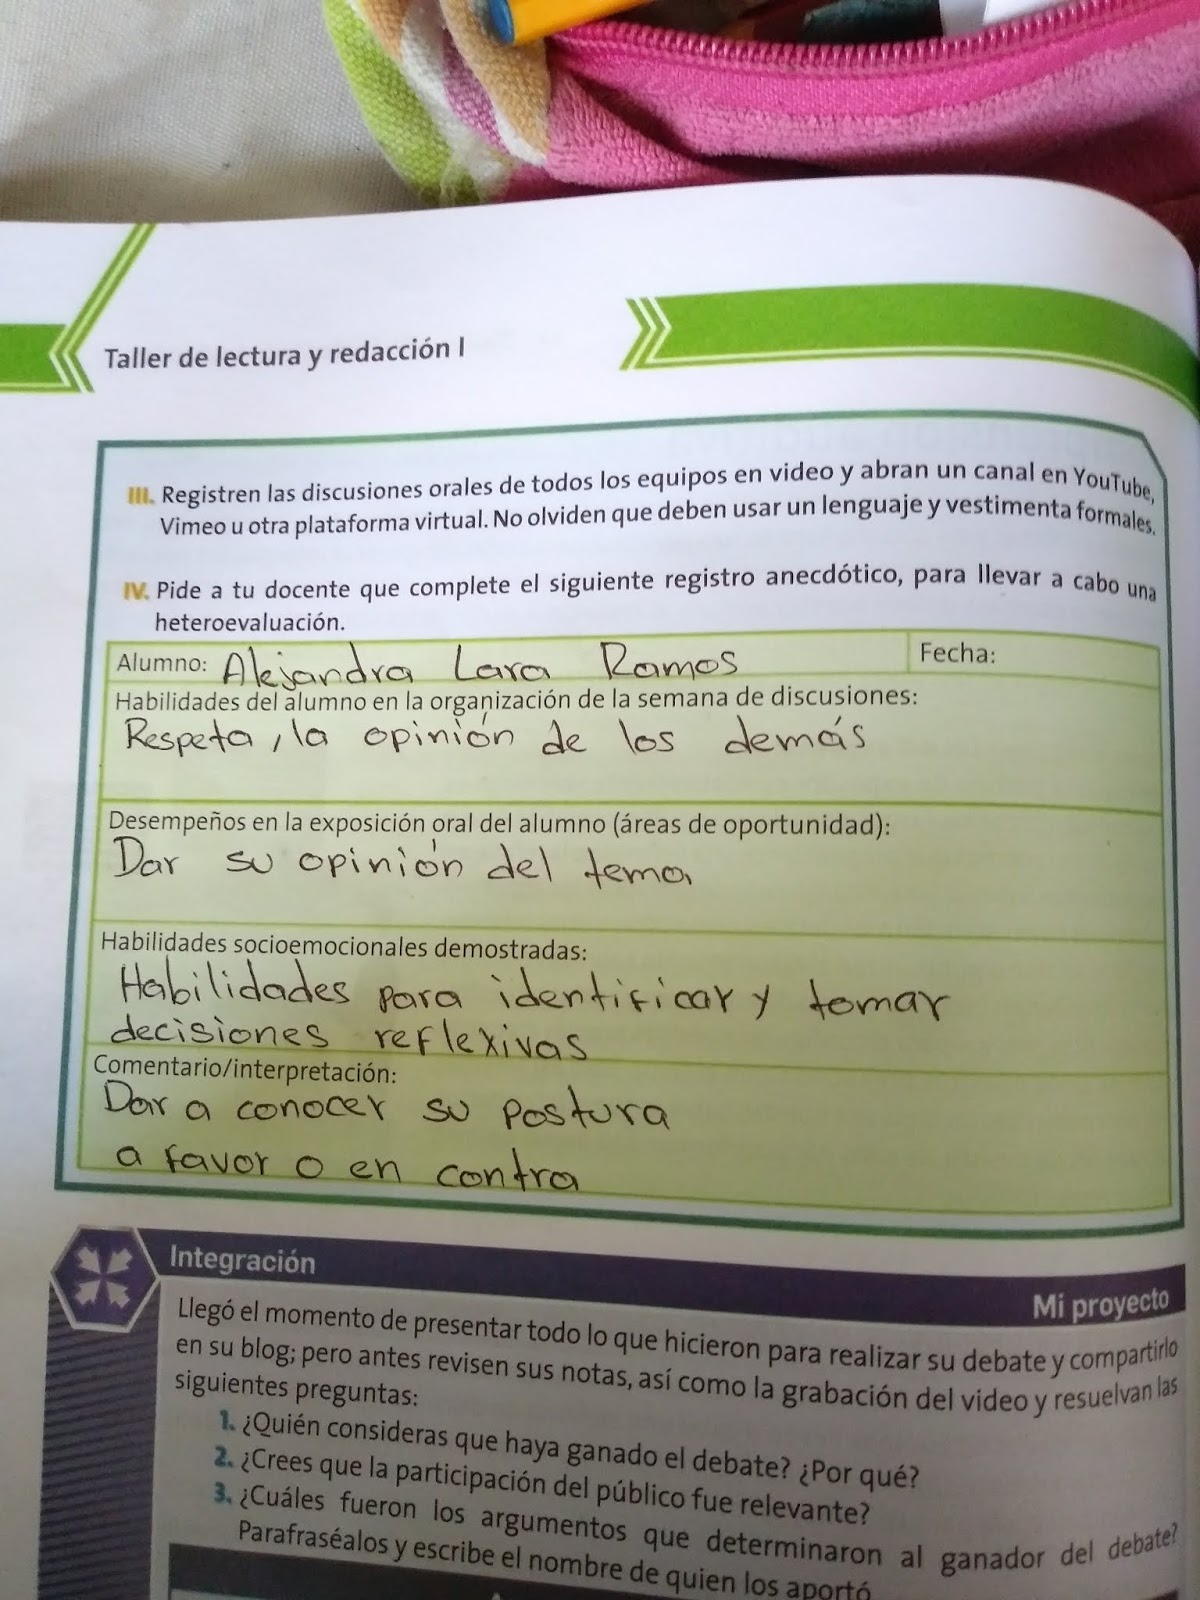 Taller de lectura y redacción I
III. Registren las discusiones orales de todos los equipos en video y abran un canal en YouTube,
Vimeo u otra plataforma virtual. No olviden que deben usar un lenguaje y vestimenta formales.
IV. Pide a tu docente que complete el siguiente registro anecdótico, para llevar a cabo una
heteroevaluación.
Alumno: Alejandra Lara Ramos Fecha:
Habilidades del alumno en la organización de la semana de discusiones:
Respeta, la opinión de los demás
Desempeños en la exposición oral del alumno (áreas de oportunidad):
Dar su opinión del tema
Habilidades socioemocionales demostradas:
Habilidades para identificar y tomar
decisiones reflexivas
Comentario/interpretación:
Dar a conocer su postura
a favor o en contra
Integración
Mi proyecto
Llegó el momento de presentar todo lo que hicieron para realizar su debate y compartirlo
en su blog; pero antes revisen sus notas, así como la grabación del video y resuelvan las
siguientes preguntas:
1. ¿Quién consideras que haya ganado el debate? ¿Por qué?
2. ¿Crees que la participación del público fue relevante?
3. ¿Cuáles fueron los argumentos que determinaron al ganador del debate?
Parafraséalos y escribe el nombre de quien los aportó